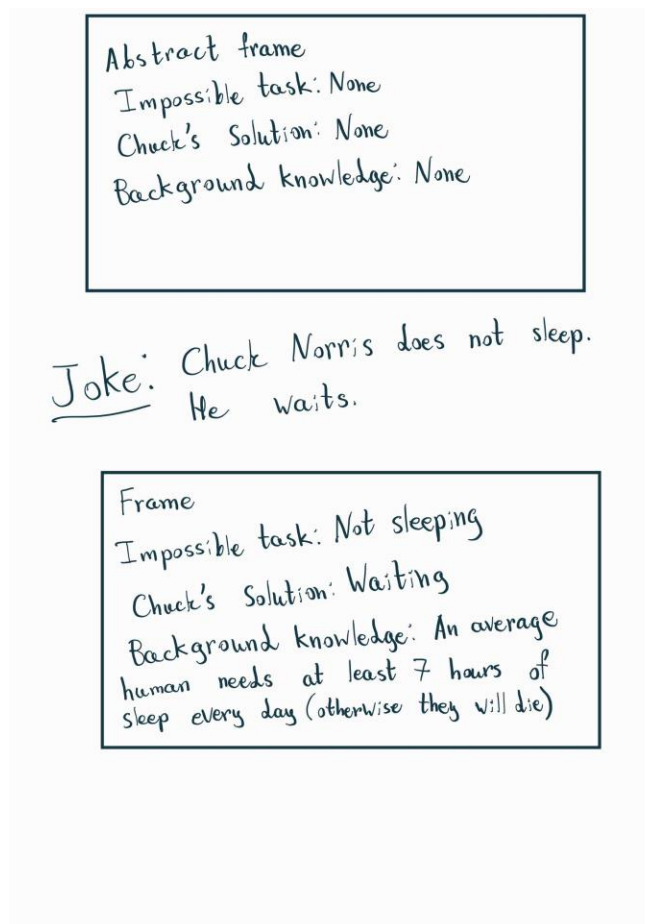 Abstract frame
Impossible task: None
Chuck's Solution: None
Background knowledge: None
Joke: Chuck Norris does not sleep.
He waits.
Frame
Impossible task: Not sleeping
Chuck's Solution: Waiting
Background knowledge: An average
human needs at least 7 hours of
sleep every day (otherwise they will die)